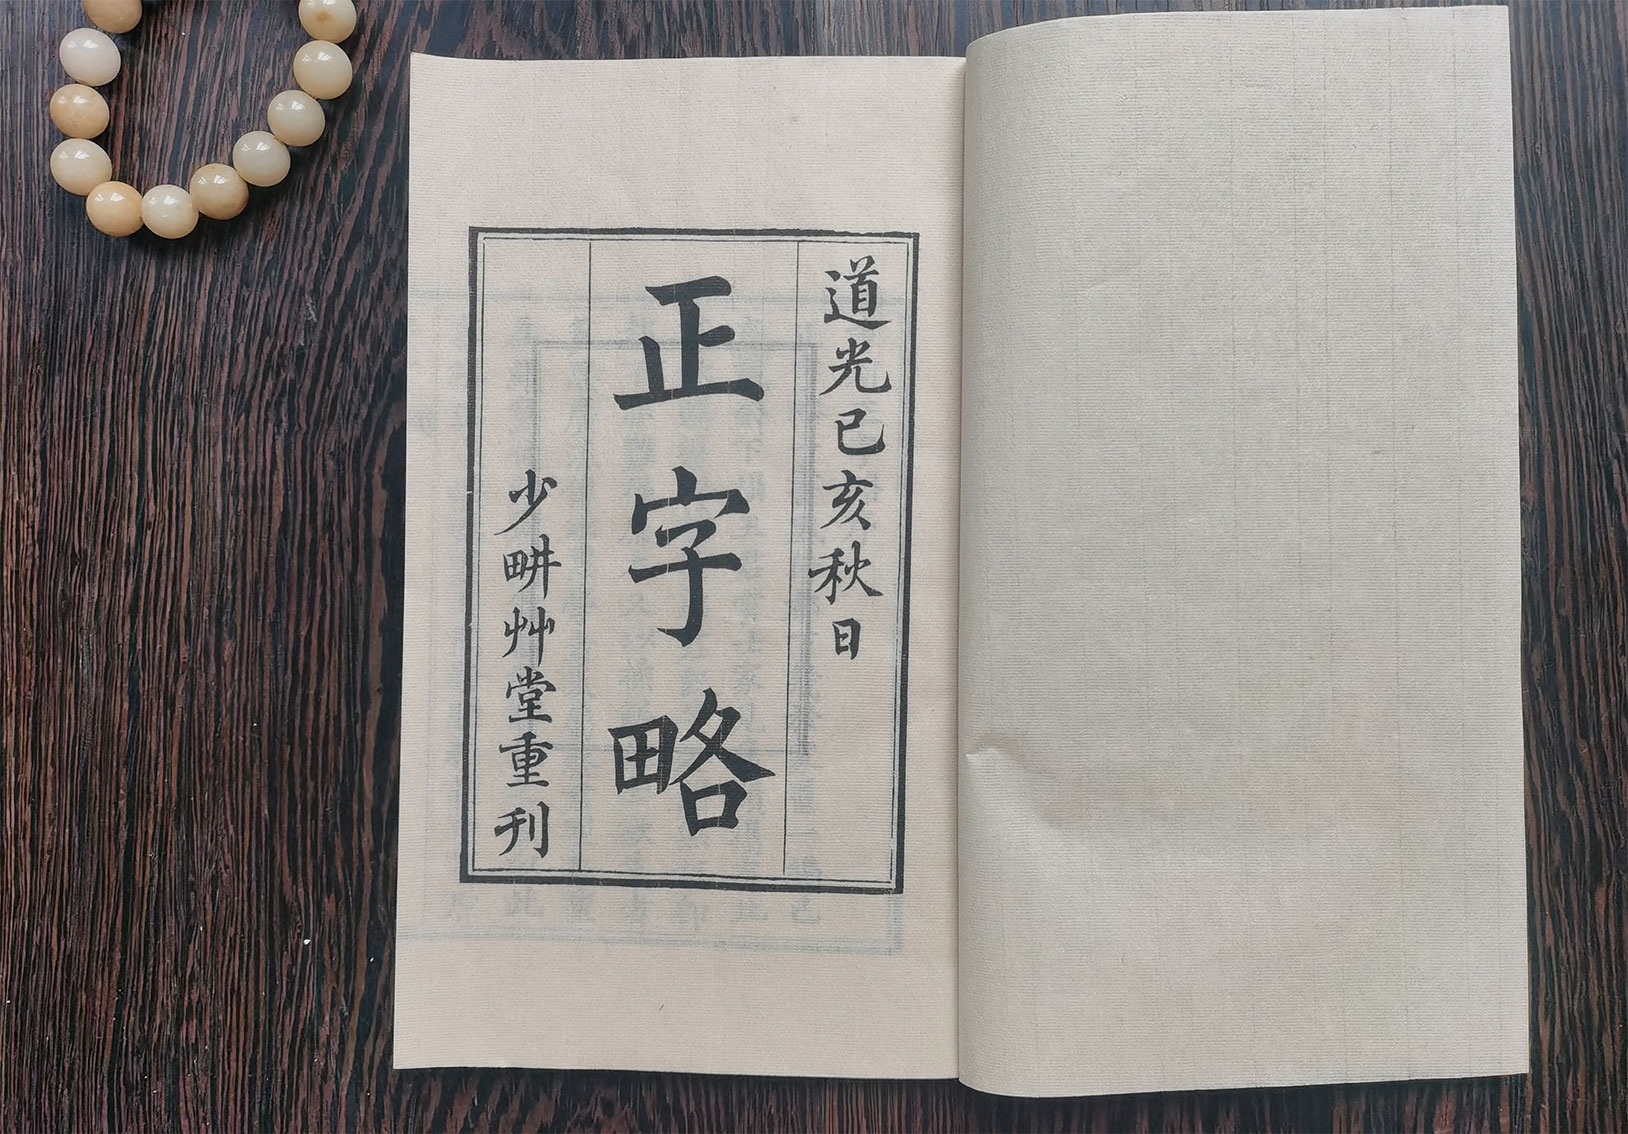 道光已亥秋日
正字略
少畊艸堂重刊